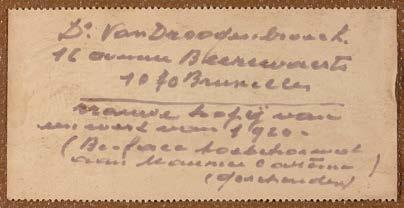 Dr. Van Droogenbroeck.
16 avenue Beeckmaerts
1070 Bruxelles
nauwe kopij van
een werk van 1920-
(Bi-face toebehorend
aan Maurice Carême)
(Geschonden)